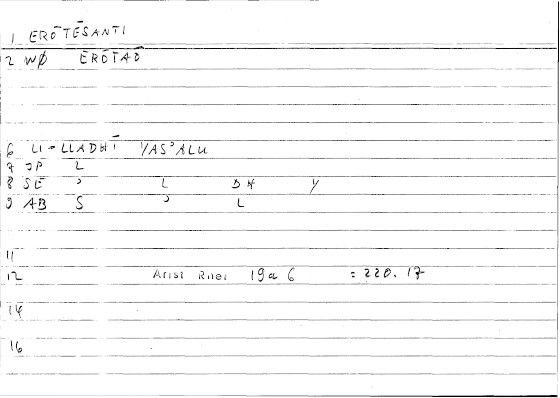 1 ERŌTĒSANTI
2 WØ ERŌTAŌ
6 LI-LLADHĪ YAS'ALU
7 JP L
8 SE ' L DH Y
9 AB S ' L
11
12 Arist Rhet 19a6 = 220.17
14
16